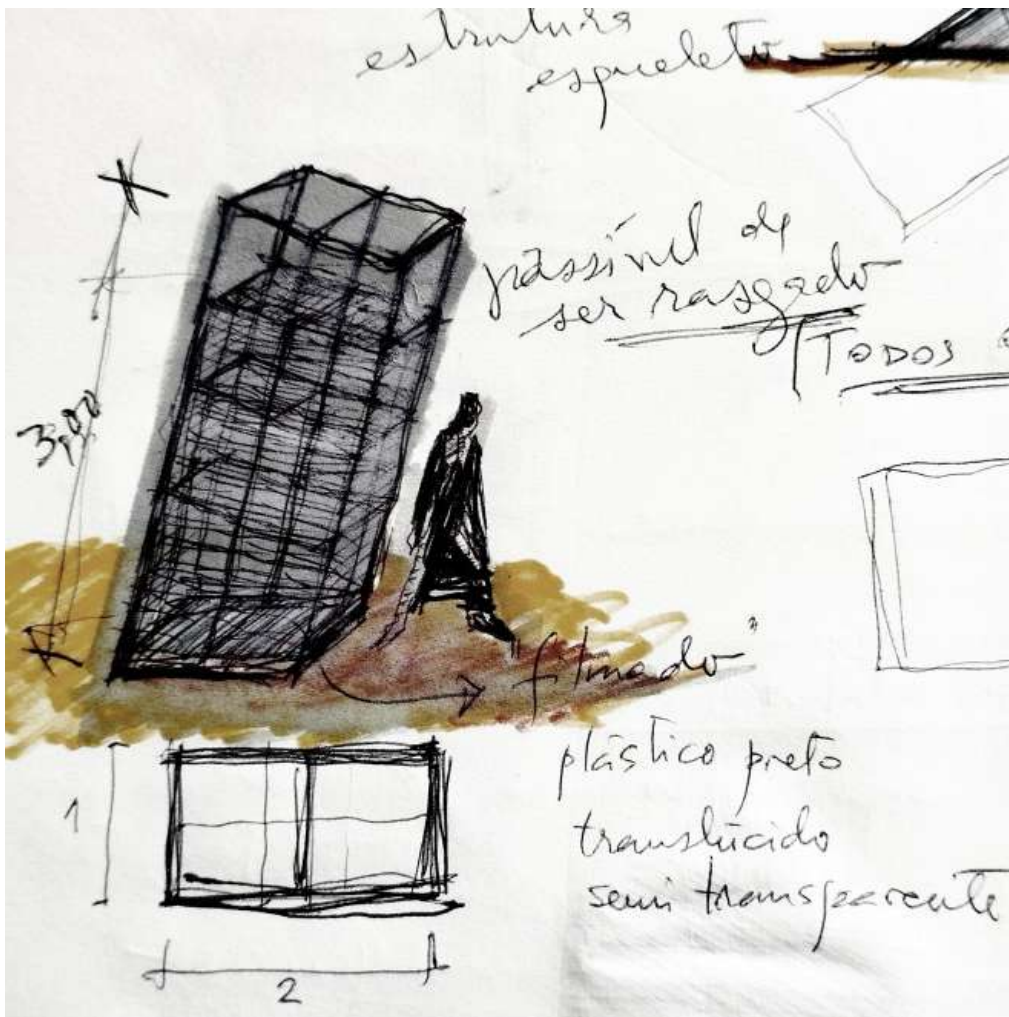 estrutura
esqueleto
passível de
ser rasgado
TODOS
3,90
"filmado"
plástico preto
translúcido
semi transparente
1
2